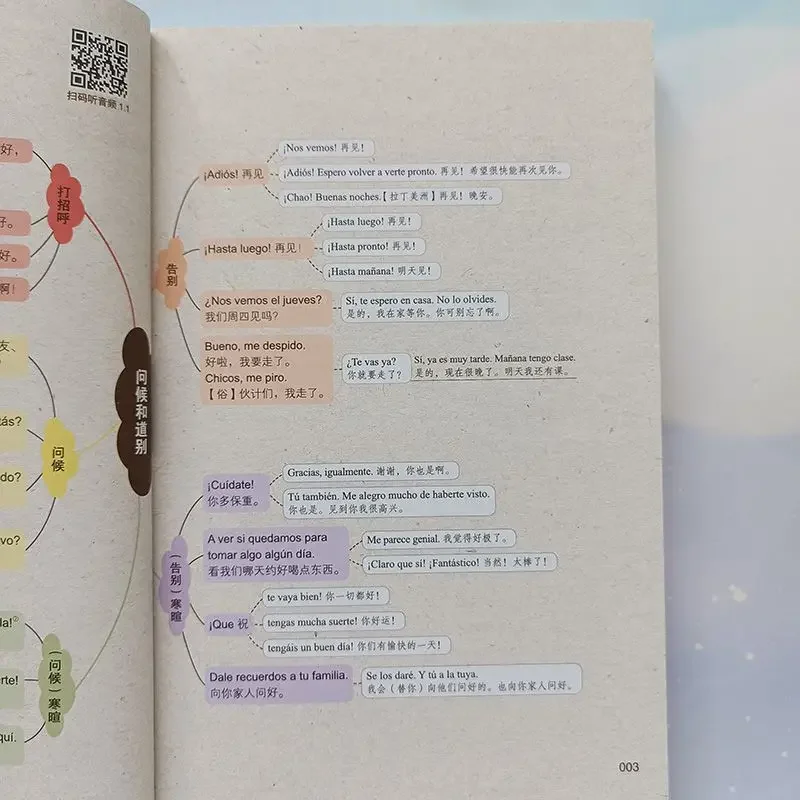 扫码听音频 1.1
好，
好。
好。
啊！
友、
tás?
do?
vo?
la!②
rte!
quí.
打招呼
问候
（问候）寒暄
问候和道别
告别
¡Adiós! 再见
¡Nos vemos! 再见！
¡Adiós! Espero volver a verte pronto. 再见！希望很快能再次见你。
¡Chao! Buenas noches.【拉丁美洲】再见！晚安。
¡Hasta luego! 再见！
¡Hasta luego! 再见！
¡Hasta pronto! 再见！
¡Hasta mañana! 明天见！
¿Nos vemos el jueves?
我们周四见吗？
Sí, te espero en casa. No lo olvides.
是的，我在家等你。你可别忘了啊。
Bueno, me despido.
好啦，我要走了。
Chicos, me piro.
【俗】伙计们，我走了。
¿Te vas ya?
你就要走了？
Sí, ya es muy tarde. Mañana tengo clase.
是的，现在很晚了。明天我还有课。
（告别）寒暄
¡Cuídate!
你多保重。
Gracias, igualmente. 谢谢，你也是啊。
Tú también. Me alegro mucho de haberte visto.
你也是。见到你我很高兴。
A ver si quedamos para
tomar algo algún día.
看我们哪天约好喝点东西。
Me parece genial. 我觉得好极了。
¡Claro que sí! ¡Fantástico! 当然！太棒了！
¡Que 祝
te vaya bien! 你一切都好！
tengas mucha suerte! 你好运！
tengáis un buen día! 你们有愉快的一天！
Dale recuerdos a tu familia.
向你家人问好。
Se los daré. Y tú a la tuya.
我会（替你）向他们问好的。也向你家人问好。
003